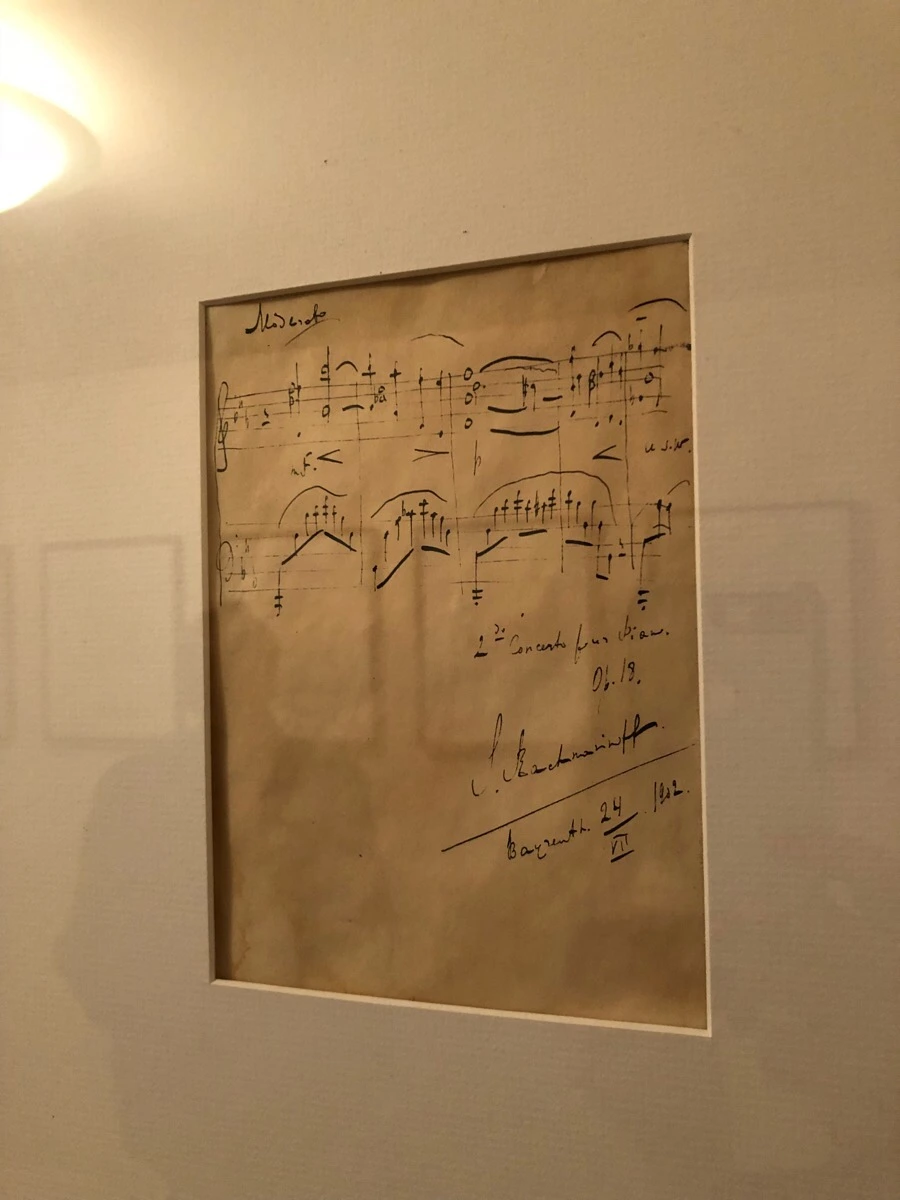 Moderato
mf. p u. s. w.
2do Concerto pour Piano.
Op. 18.
S. Rachmaninoff.
Bayreuth. 24/VII. 1902.